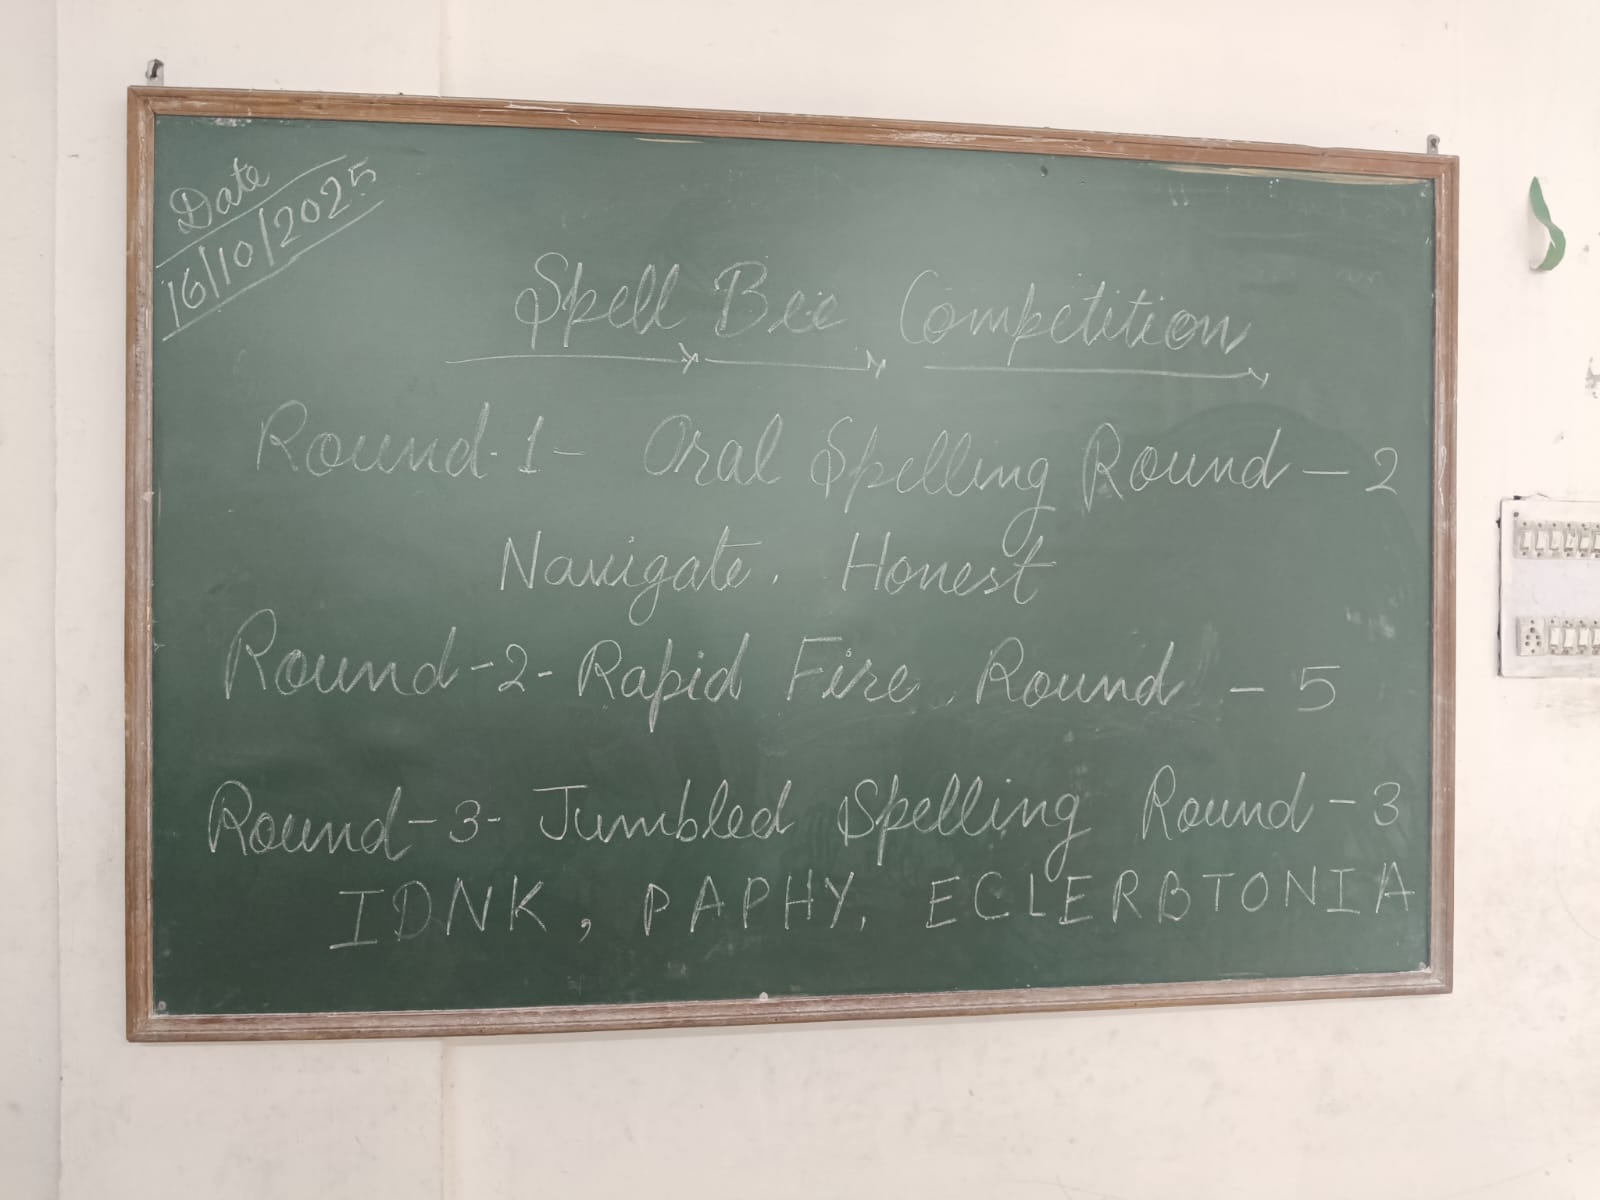 Date
16/10/2025
Spell Bee Competition
Round-1- Oral Spelling Round - 2
Navigate, Honest
Round-2- Rapid Fire Round - 5
Round-3- Jumbled Spelling Round - 3
IDNK, PAPHY, ECLERBTONIA